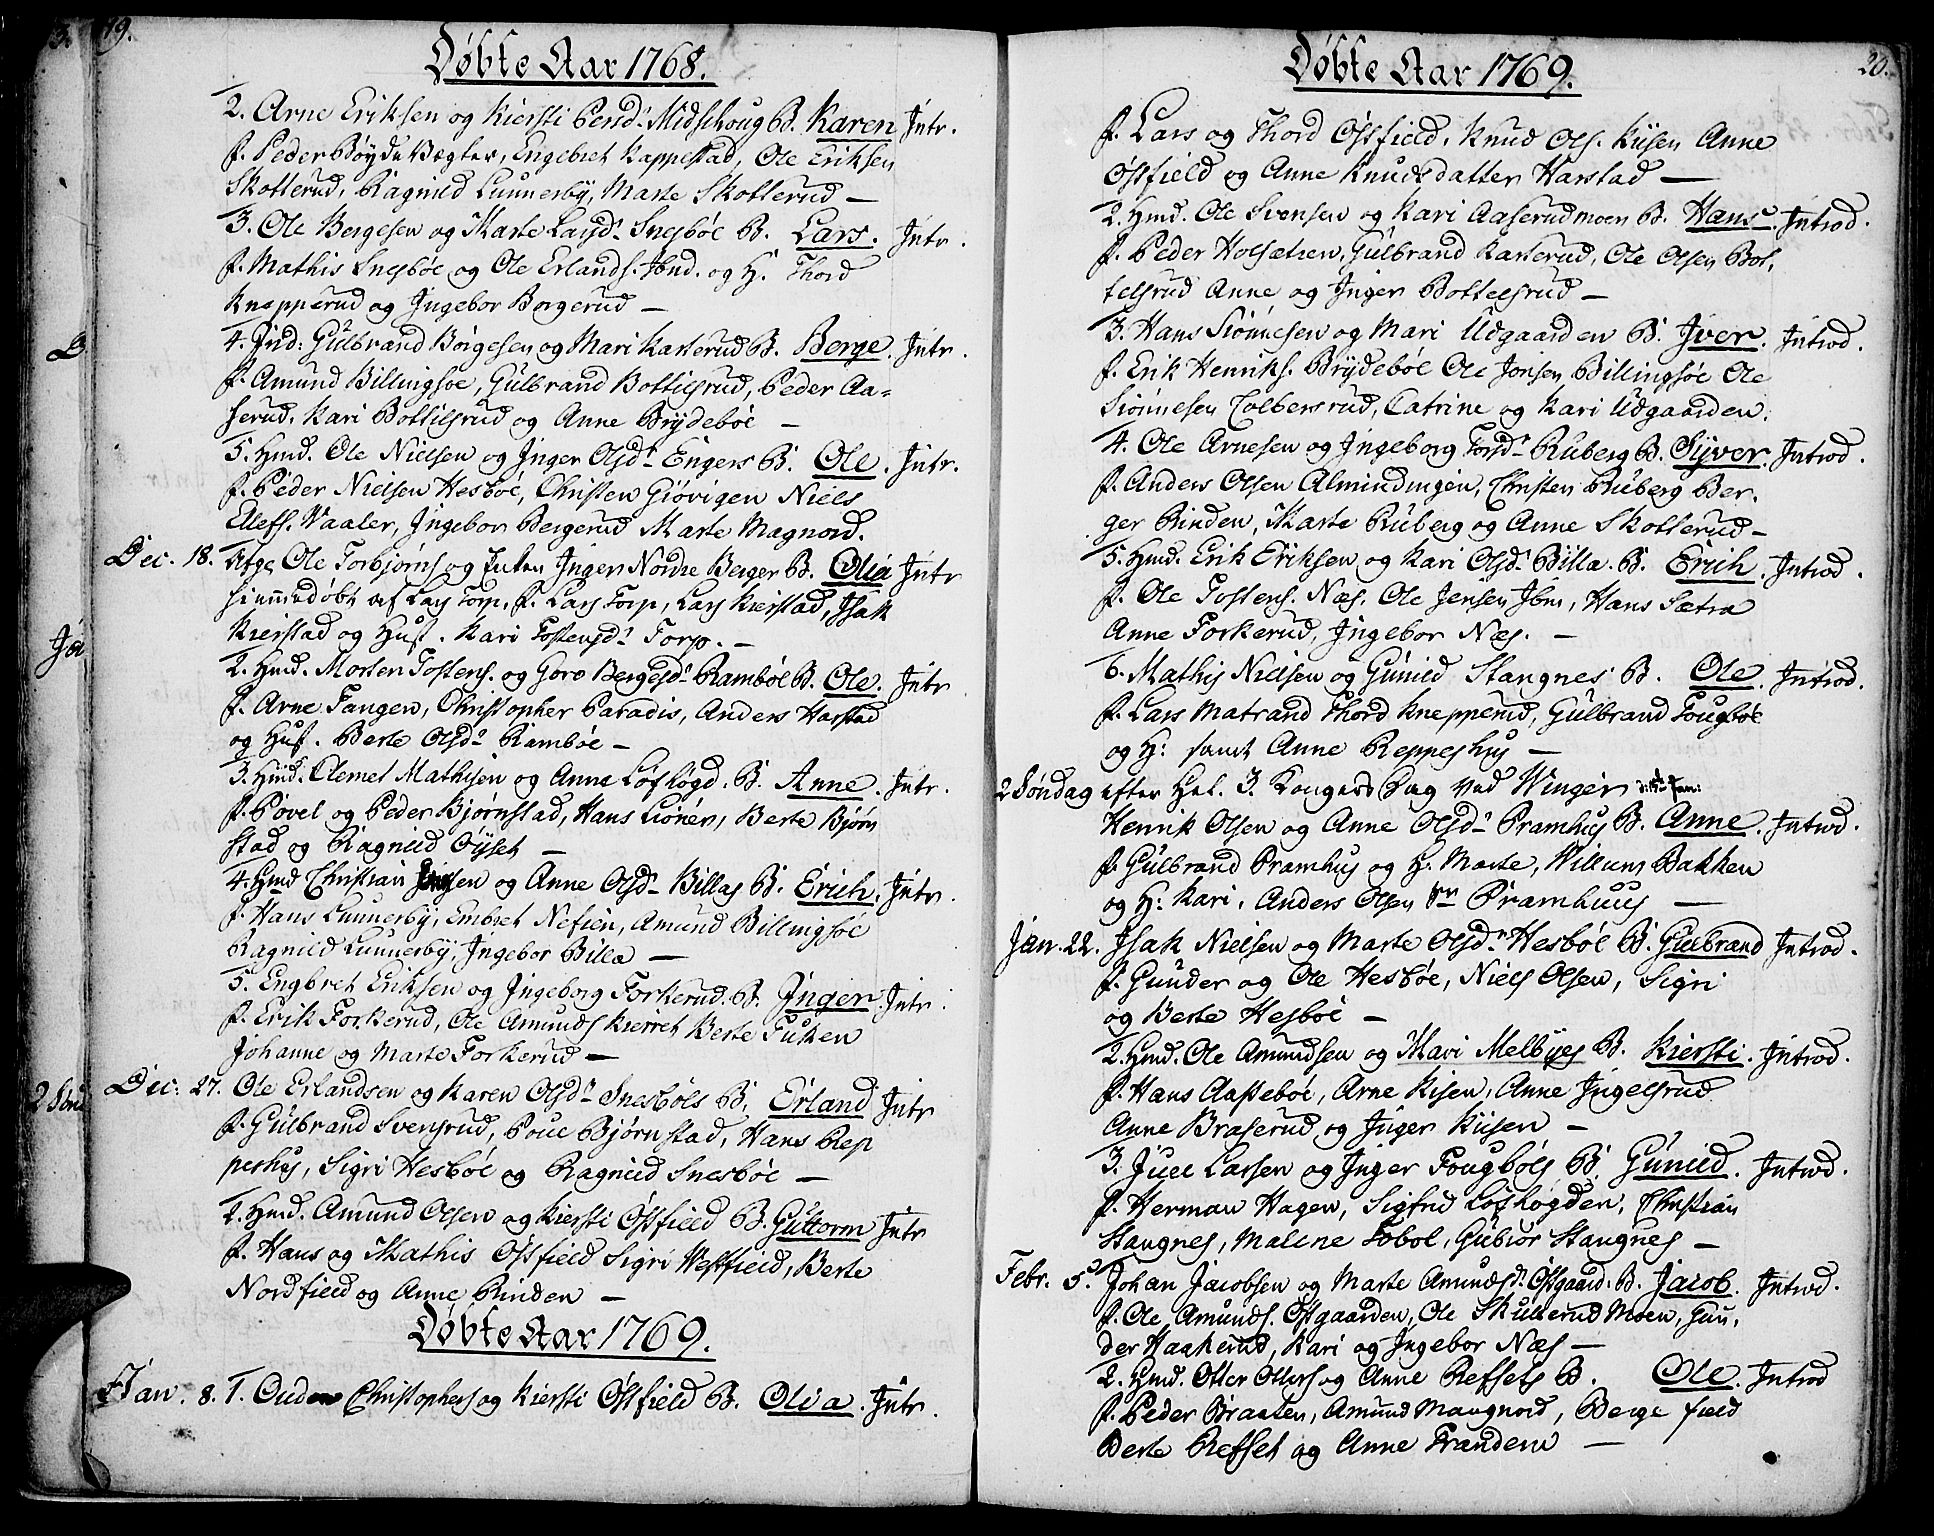 19.
Døbte Aar 1768.
2. Arne Eriksen og Kiersti Persd. Midschoug B. Karen Intr.
f. Peder Bøyde Vægter, Engebret Kappestad, Ole Eriksen
Skotterud, Ragnild Lunnerby, Marte Skotterud —
3. Ole Bergesen og Marte Larsd. Snesbøe B. Lars. Intr.
f. Mathis Snesbøe og Ole Erlands. Ibnd. og H. Thord
Knapperud og Ingebor Borgerud —
4. Ind: Gulbrand Børgesen og Mari Kasterud B. Berge. Intr.
f. Amund Billingsøe, Gulbrand Bottilsrud, Peder Aa=
serud, Kari Bottilsrud og Anne Brydebøe —
5. Hmd. Ole Nielsen og Inger Olsd. Engers B. Ole. Intr.
f. Peder Nielsen Hesbøe, Christen Giøvigen Niels
Ellefs. Vaaler, Ingebor Bergerud Marte Magnord.
Dec. 18. Ole Torbjørns og Inger Nordre Berger B. Olia Intr
hiemmedøbt af Lars Torp, f. Lars Torp, Lars Kierstad, Isak
Kierstad og Hust. Kari Tostensd. Torp. —
2. Hmd. Morten Tostens. og Goro Bergesd. Rambøl B. Ole. Intr
f. Arne Tangen, Christopher Paradis, Anders Harstad
og Hust. Berte Olsd. Rambøe —
3. Hmd. Clemet Mathisen og Anne Løfhøgd. B. Anne. Intr.
f. Povel og Peder Bjørnstad, Hans Lionær, Berte Bjørn
stad og Ragnild Øyset —
4. Hmd Christian Jensen og Anne Olsd. Billas B. Erich. Intr.
f. Hans Lunnerby, Embret Nefien, Amund Billingsøe
Ragnild Lunnerby, Ingebor Billa —
5. Engbret Eriksen og Ingeborg Forkerud. B. Inger. Intr.
f. Erik Forkerud, Ole Amunds Kierret Berte Tuken
Johanne og Marte Forkerud —
Dec: 27. Ole Erlandsen og Karen Olsd. Snesbøls B. Erland Intr
f. Gulbrand Svensrud, Poul Bjørnstad, Hans Rep
peshus, Sigri Hesbøe og Ragnild Snesbøe —
2. Hmd. Amund Olsen og Kiersti Østfield B. Guttorm Intr
f. Hans og Mathis Østfield Sigri Westfield, Berte
Nordfield og Anne Rinden —
Døbte Aar 1769.
Jan. 8. 1. Ouden Christophers og Kiersti Østfield B. Olia. Intr.
20.
Døbte Aar 1769.
f. Lars og Thord Østfield, Knud Ols. Kiisen Anne
Østfield og Anne Knudsdatter Harstad —
2. Hmd. Ole Svensen og Kari Aaserudmoen B. Hans. Introd.
f. Peder Holsætren, Gulbrand Kasterud, Ole Olsen Bot,
telsrud Anne og Inger Bottelsrud —
3. Hans Siønnesen og Mari Udgaarden B. Iver. Introd.
f. Erik Henriks. Brydebøe Ole Jonsen Billingsøe Ole
Siønnesen Colbersrud, Catrine og Kari Udgaarden.
4. Ole Arnesen og Ingeborg Torsd. Ruberg B. Syver. Introd.
f. Anders Olsen Almindingen, Christen Ruberg Ber.
ger Rinden, Marte Ruberg og Anne Skotterud —
5. Hmd. Erik Eriksen og Kari Olsd. Billa. B. Erich. Introd.
f. Ole Tostens. Næs. Ole Jensen Ibm, Hans Sætra
Anne Forkerud, Ingebor Næs. —
6. Mathis Nielsen og Gunild Stangnes B. Ole. Introd.
f. Lars Matrand Thord Knepperud, Gulbrand Fougbøe
og H: samt Anne Reppeshus —
2 Søndag efter Hel. 3. Kongers Dag ved Winger
Henrik Olsen og Anne Olsd. Pramhus B. Anne. Introd.
f. Gulbrand Pramhus og H. Marte, Willum Bakken
og H: Kari, Anders Olsen Pramhuus —
Jan. 22. Isak Nielsen og Marte Olsd. Hesbøl B. Gulbrand Introd.
f. Gunder og Ole Hesbøe, Niels Olsen, Sigri
og Berte Hesbøe —
2. Hmd. Ole Amundsen og Mari Melbyes B. Kiersti. Introd.
f. Hans Aastebøe, Arne Kisen, Anne Ingelsrud
Anne Braserud og Inger Kiisen —
3. Juel Larsen og Inger Fougbøls B. Gunild. Introd.
f. Herman Hagen, Sigfrid Løfhøgden, Christian
Stangnes, Malene Tobol, Gubiør Stangnes —
Febr. 5. Johan Jacobsen og Marte Amundsd. Østgaard. B. Jacob. Introd.
f. Ole Amunds. Østgaarden, Ole Skullerud Moen, Gun,
der Haakerud, Kari og Ingebor Næs —
2. Hmd. Otter Otters og Anne Refsets B. Ole. Introd
f. Peder Braaten, Amund Mangnord, Berge field
Berte Refset og Anne Tranden —